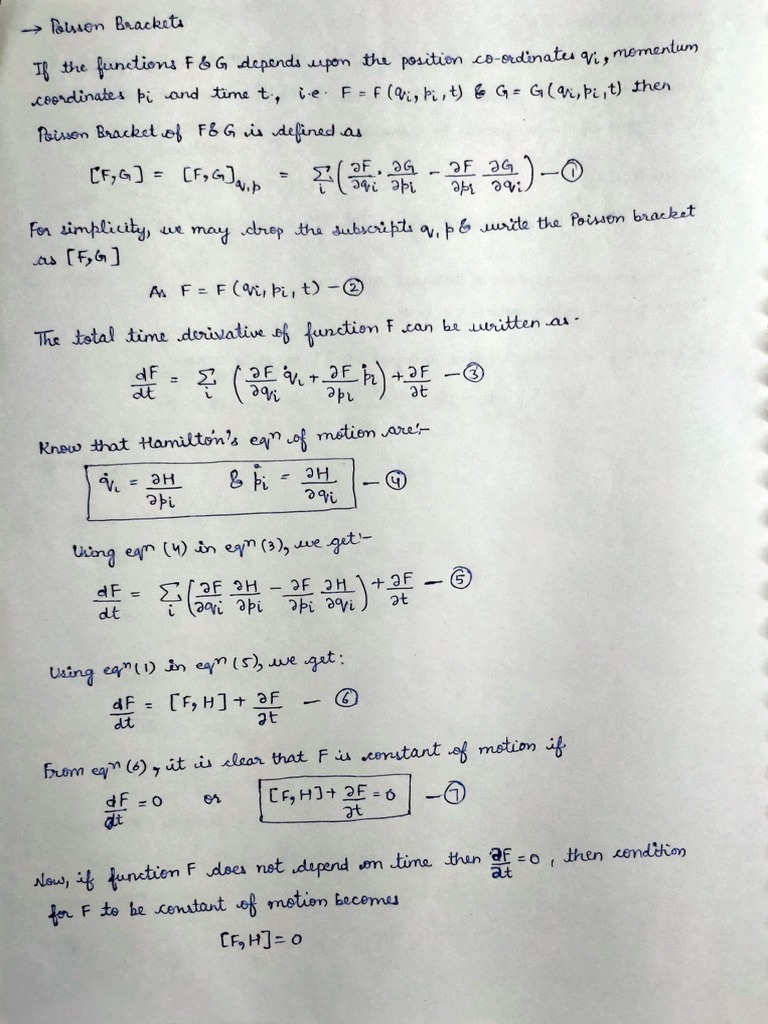 → Poisson Brackets
If the functions F & G depends upon the position co-ordinates qi, momentum
coordinates pi and time t, i.e. F = F(qi, pi, t) & G = G(qi, pi, t) then
Poisson Bracket of F & G is defined as
[F,G] = [F,G]q,p = Σi (∂F/∂qi · ∂G/∂pi − ∂F/∂pi ∂G/∂qi) — ①
For simplicity, we may drop the subscripts q, p & write the Poisson bracket
as [F,G]
As F = F(qi, pi, t) — ②
The total time derivative of function F can be written as.
dF/dt = Σi (∂F/∂qi q̇i + ∂F/∂pi ṗi) + ∂F/∂t — ③
Know that Hamilton's eqn of motion are:-
q̇i = ∂H/∂pi & ṗi = ∂H/∂qi — ④
Using eqn (4) in eqn (3), we get:-
dF/dt = Σi (∂F/∂qi ∂H/∂pi − ∂F/∂pi ∂H/∂qi) + ∂F/∂t — ⑤
Using eqn (1) in eqn (5), we get:
dF/dt = [F, H] + ∂F/∂t — ⑥
From eqn (6), it is clear that F is constant of motion if
dF/dt = 0 or [F, H] + ∂F/∂t = 0 — ⑦
Now, if function F does not depend on time then ∂F/∂t = 0, then condition
for F to be constant of motion becomes
[F, H] = 0